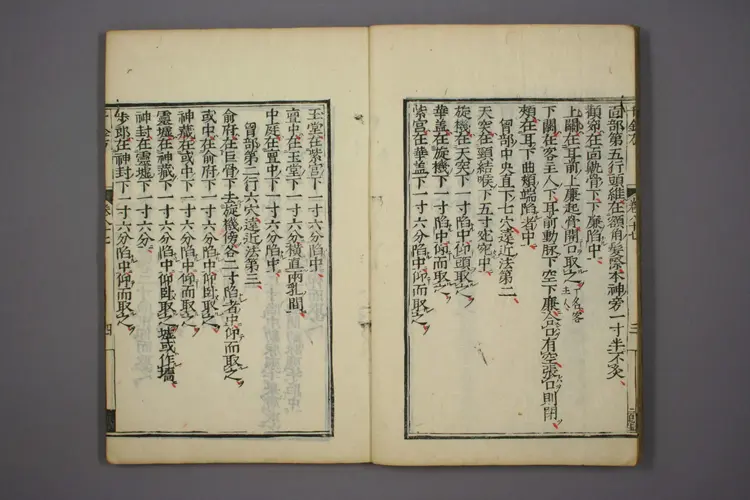 面部第五行頭維在額角髮際本神旁一寸半不灸
顴窌在面鼽骨下下廉陷中
上關在耳前上廉起骨開口取之一名客主人
下關在客主人下耳前動脉下空下廉合口有空張口則閉
頰在耳下曲頰端陷者中
胷部中央直下七穴遠近法第二
天突在頸結喉下五寸宛宛中
旋機在天突下一寸陷中仰頭取之
華蓋在旋機下一寸陷中仰而取之
紫宫在華蓋下一寸六分陷中仰而取之
玉堂在紫宫下一寸六分陷中
亶中在玉堂下一寸六分橫直兩乳間
中庭在亶中下一寸六分陷中
胷部第二行六穴遠近法第三
俞府在巨骨下去旋機傍各二寸陷者中仰而取之
或中在俞府下一寸六分陷中仰卧取之
神藏在或中下一寸六分陷中仰而取之
靈墟在神藏下一寸六分陷中仰卧取之墟或作墻
神封在靈墟下一寸六分
步郎在神封下一寸六分陷中仰而取之
三
四